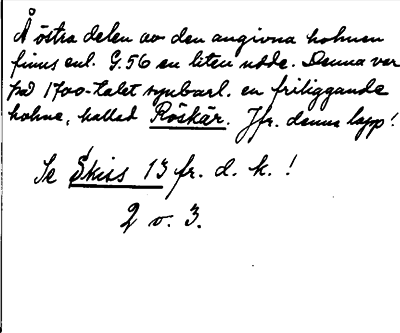 Å östra delen av den angivna holmen
finns enl. G.56 en liten udde. Denna var
på 1700-talet synbarl. en friliggande
holme, kallad Röskär. Jfr. denna lapp!
Se Skiss 13 fr. d. k.!
2 v. 3.